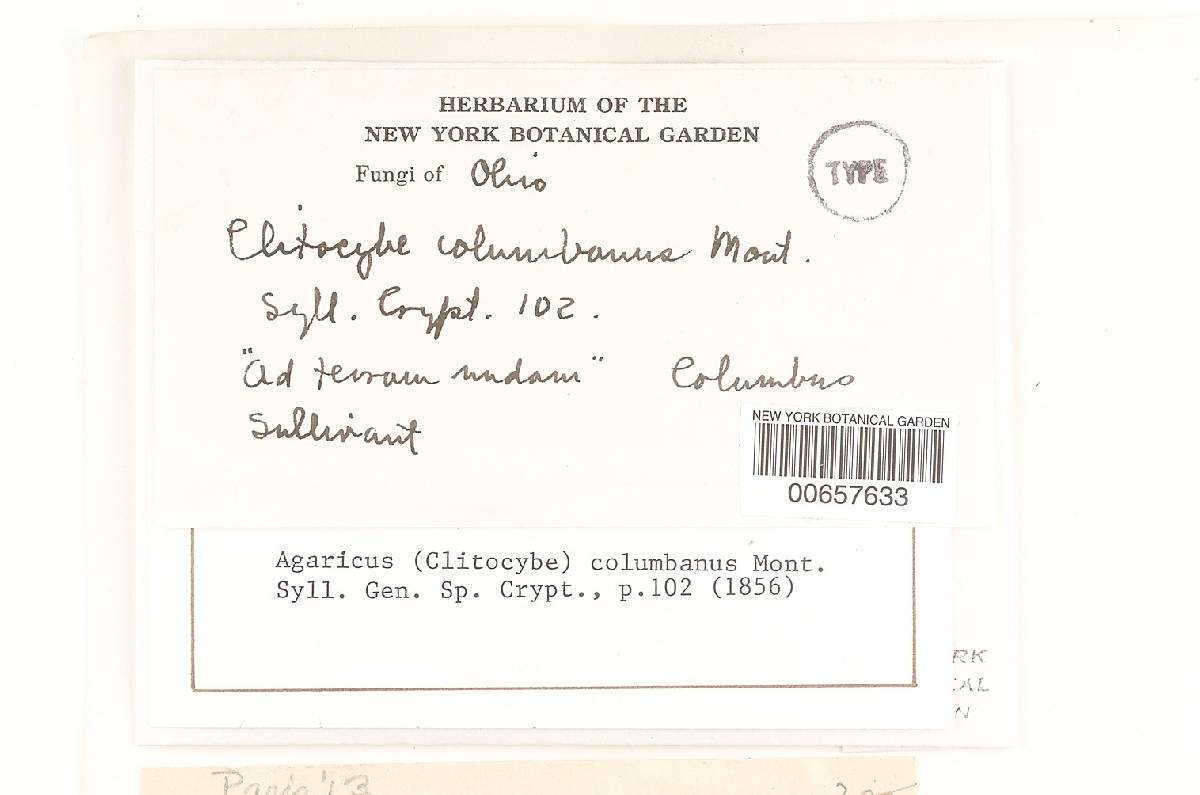 HERBARIUM OF THE
NEW YORK BOTANICAL GARDEN
Fungi of Ohio
TYPE
Clitocybe columbanus Mont.
Syll. Crypt. 102.
"Ad terram nudam" Columbus
Sullivant
NEW YORK BOTANICAL GARDEN
00657633
Agaricus (Clitocybe) columbanus Mont.
Syll. Gen. Sp. Crypt., p.102 (1856)
RK
AL
N
Paris '13